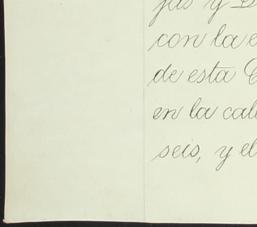 con la e
de esta
en la cal
seis, y el